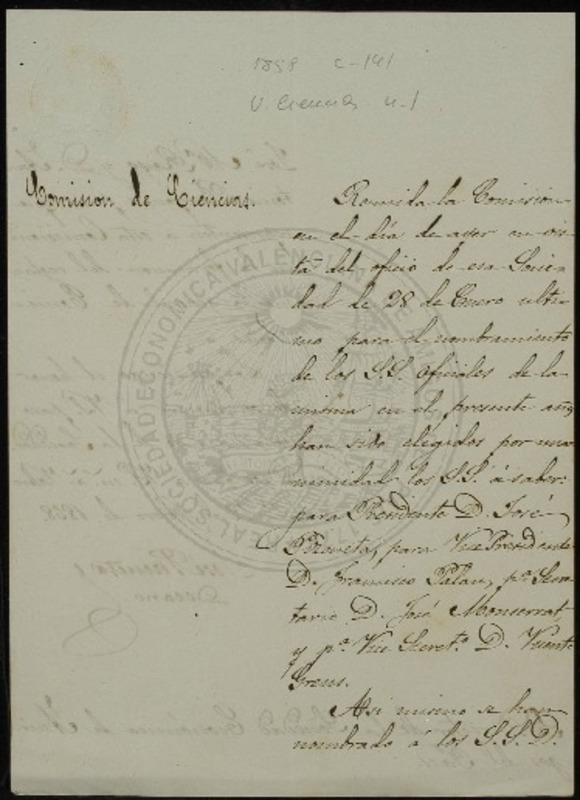 1838 C-141
V. Ciencias n-1
Comision de Ciencias.
Reunida la Comision
en el dia de ayer en vis-
ta del oficio de esa Socie-
dad de 28 de Enero ulti-
mo para el nombramiento
de los S.S. Oficiales de la
misma en el presente año
han sido elegidos por una-
nimidad los SS. á saber:
para Presidente D. José
para Vice Presidente
D. Francisco Palau, pª. Secre-
tario D. José Monserrat,
y pª. Vice Secretº. D. Vicente
Greus.
Asi mismo se han
nombrado á los S.S. Dn.
REAL SOCIEDAD ECONOMICA VALENCIANA DE AMIGOS